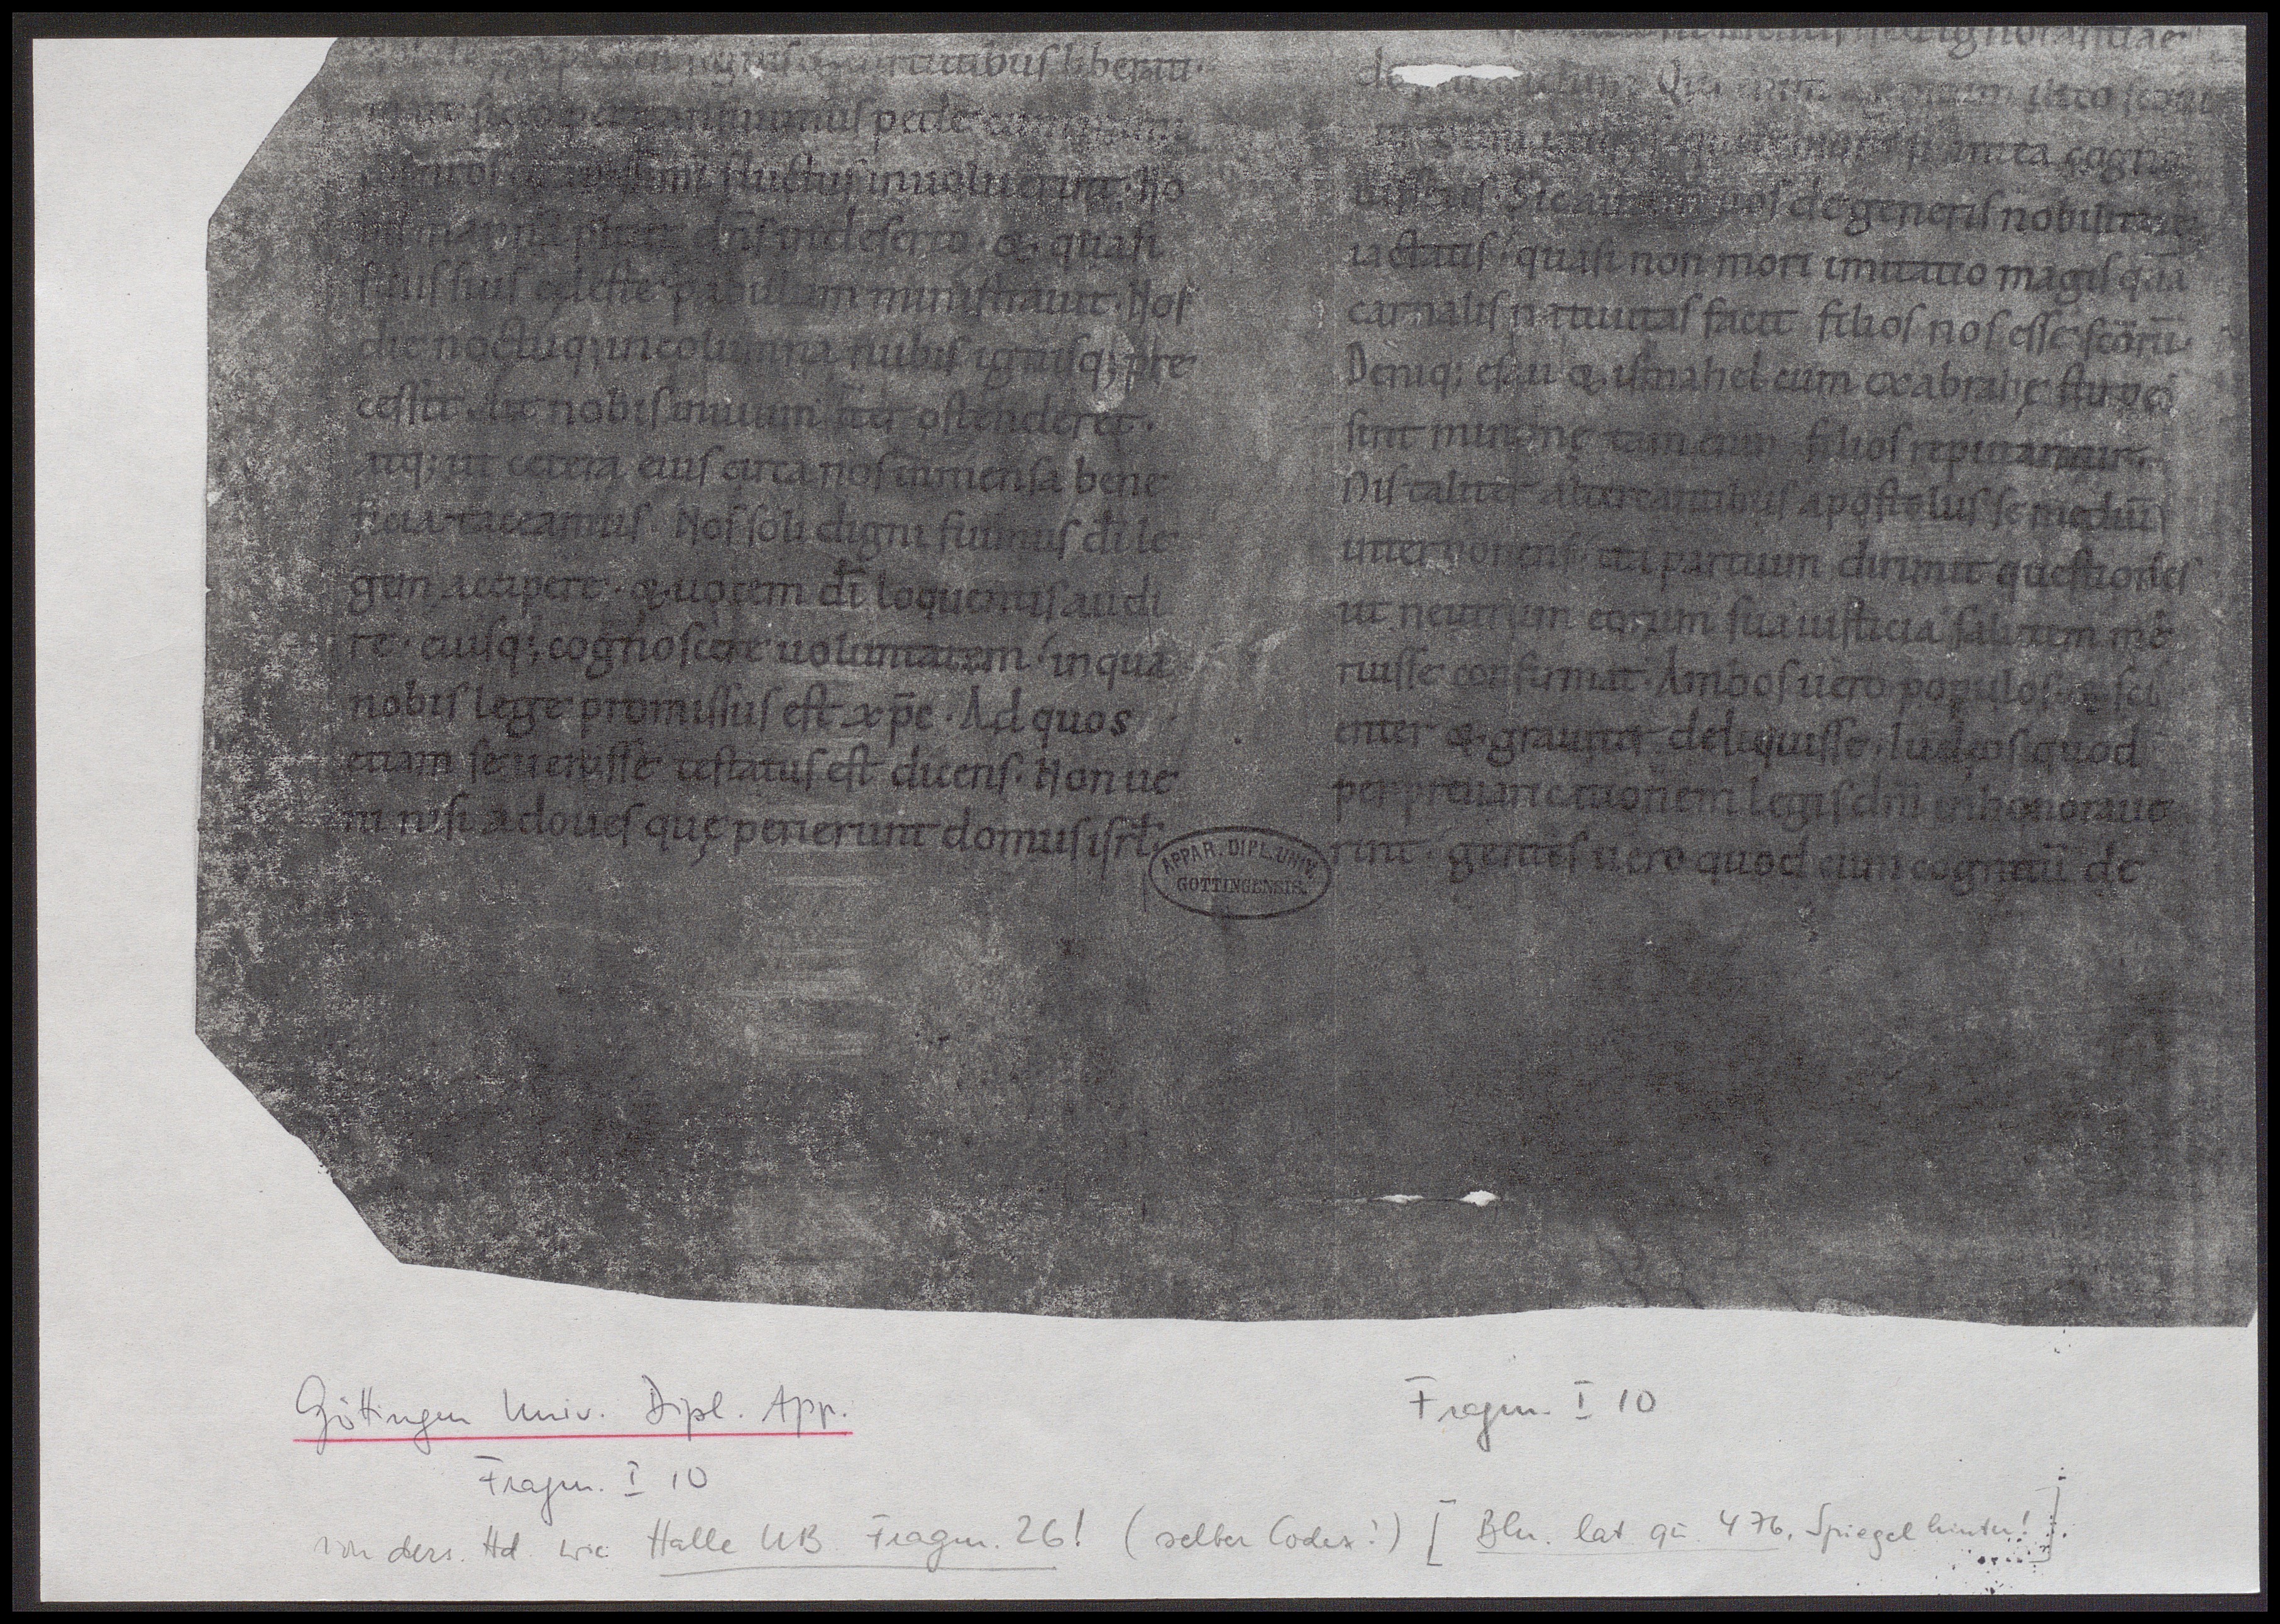 uirtutibus liberati.
mare sicco per transiuimus pede cum inimi
cos nr̄os eiusdem maris fluctus inuoluerunt. No
bis manna pluit dn̄s in deserto. & quasi
filiis suis celeste pabulum ministrauit. Nos
die noctuq; in columna nubis ignisq; pre
cessit. ut nobis inuium iter ostenderet.
atq; ut cetera eius circa nos inmensa bene
ficia taceamus. Nos soli digni fuimus dī le
gem accipere. & uocem dī loquentis audi
re. eiusq; cognoscere uoluntatem. in qua
nobis lege promissus est xp̄c. Ad quos
etiam se uenisse testatus est dicens. Non ue
ni nisi ad oues quę perierunt domus isrł.
ignorantiae
de
cogno
uissetis. Sic autem uos de generis nobilitate
iactatis. quasi non mori imitatio magis quā
carnalis natiuitas faciat filios nos esse sc̄orū.
Deniq; esau & ismahel cum ex abrahę stirpe
sint minime tamen in filios reputantur.
His taliter altercantibus apostolus se mediū
interponens. ita partium dirimit questiones
ut neutrum eorum sua iusticia salutem me
ruisse confirmat. Ambos uero populos & sci
enter & grauiter deliquisse. Iudęos quod
per preuaricationem legis dm̄ inhonoraue
rint. gentes uero quod cum cognitū de
APPAR. DIPL. UNIV.
GOTTINGENSIS.
Göttingen Univ. Dipl. App.
Fragm. I 10
Fragm. I 10
von ders. Hd. wie Halle UB Fragm. 26! (selber Codex!) [Bln. lat. qu. 476, Spiegel hinten!].